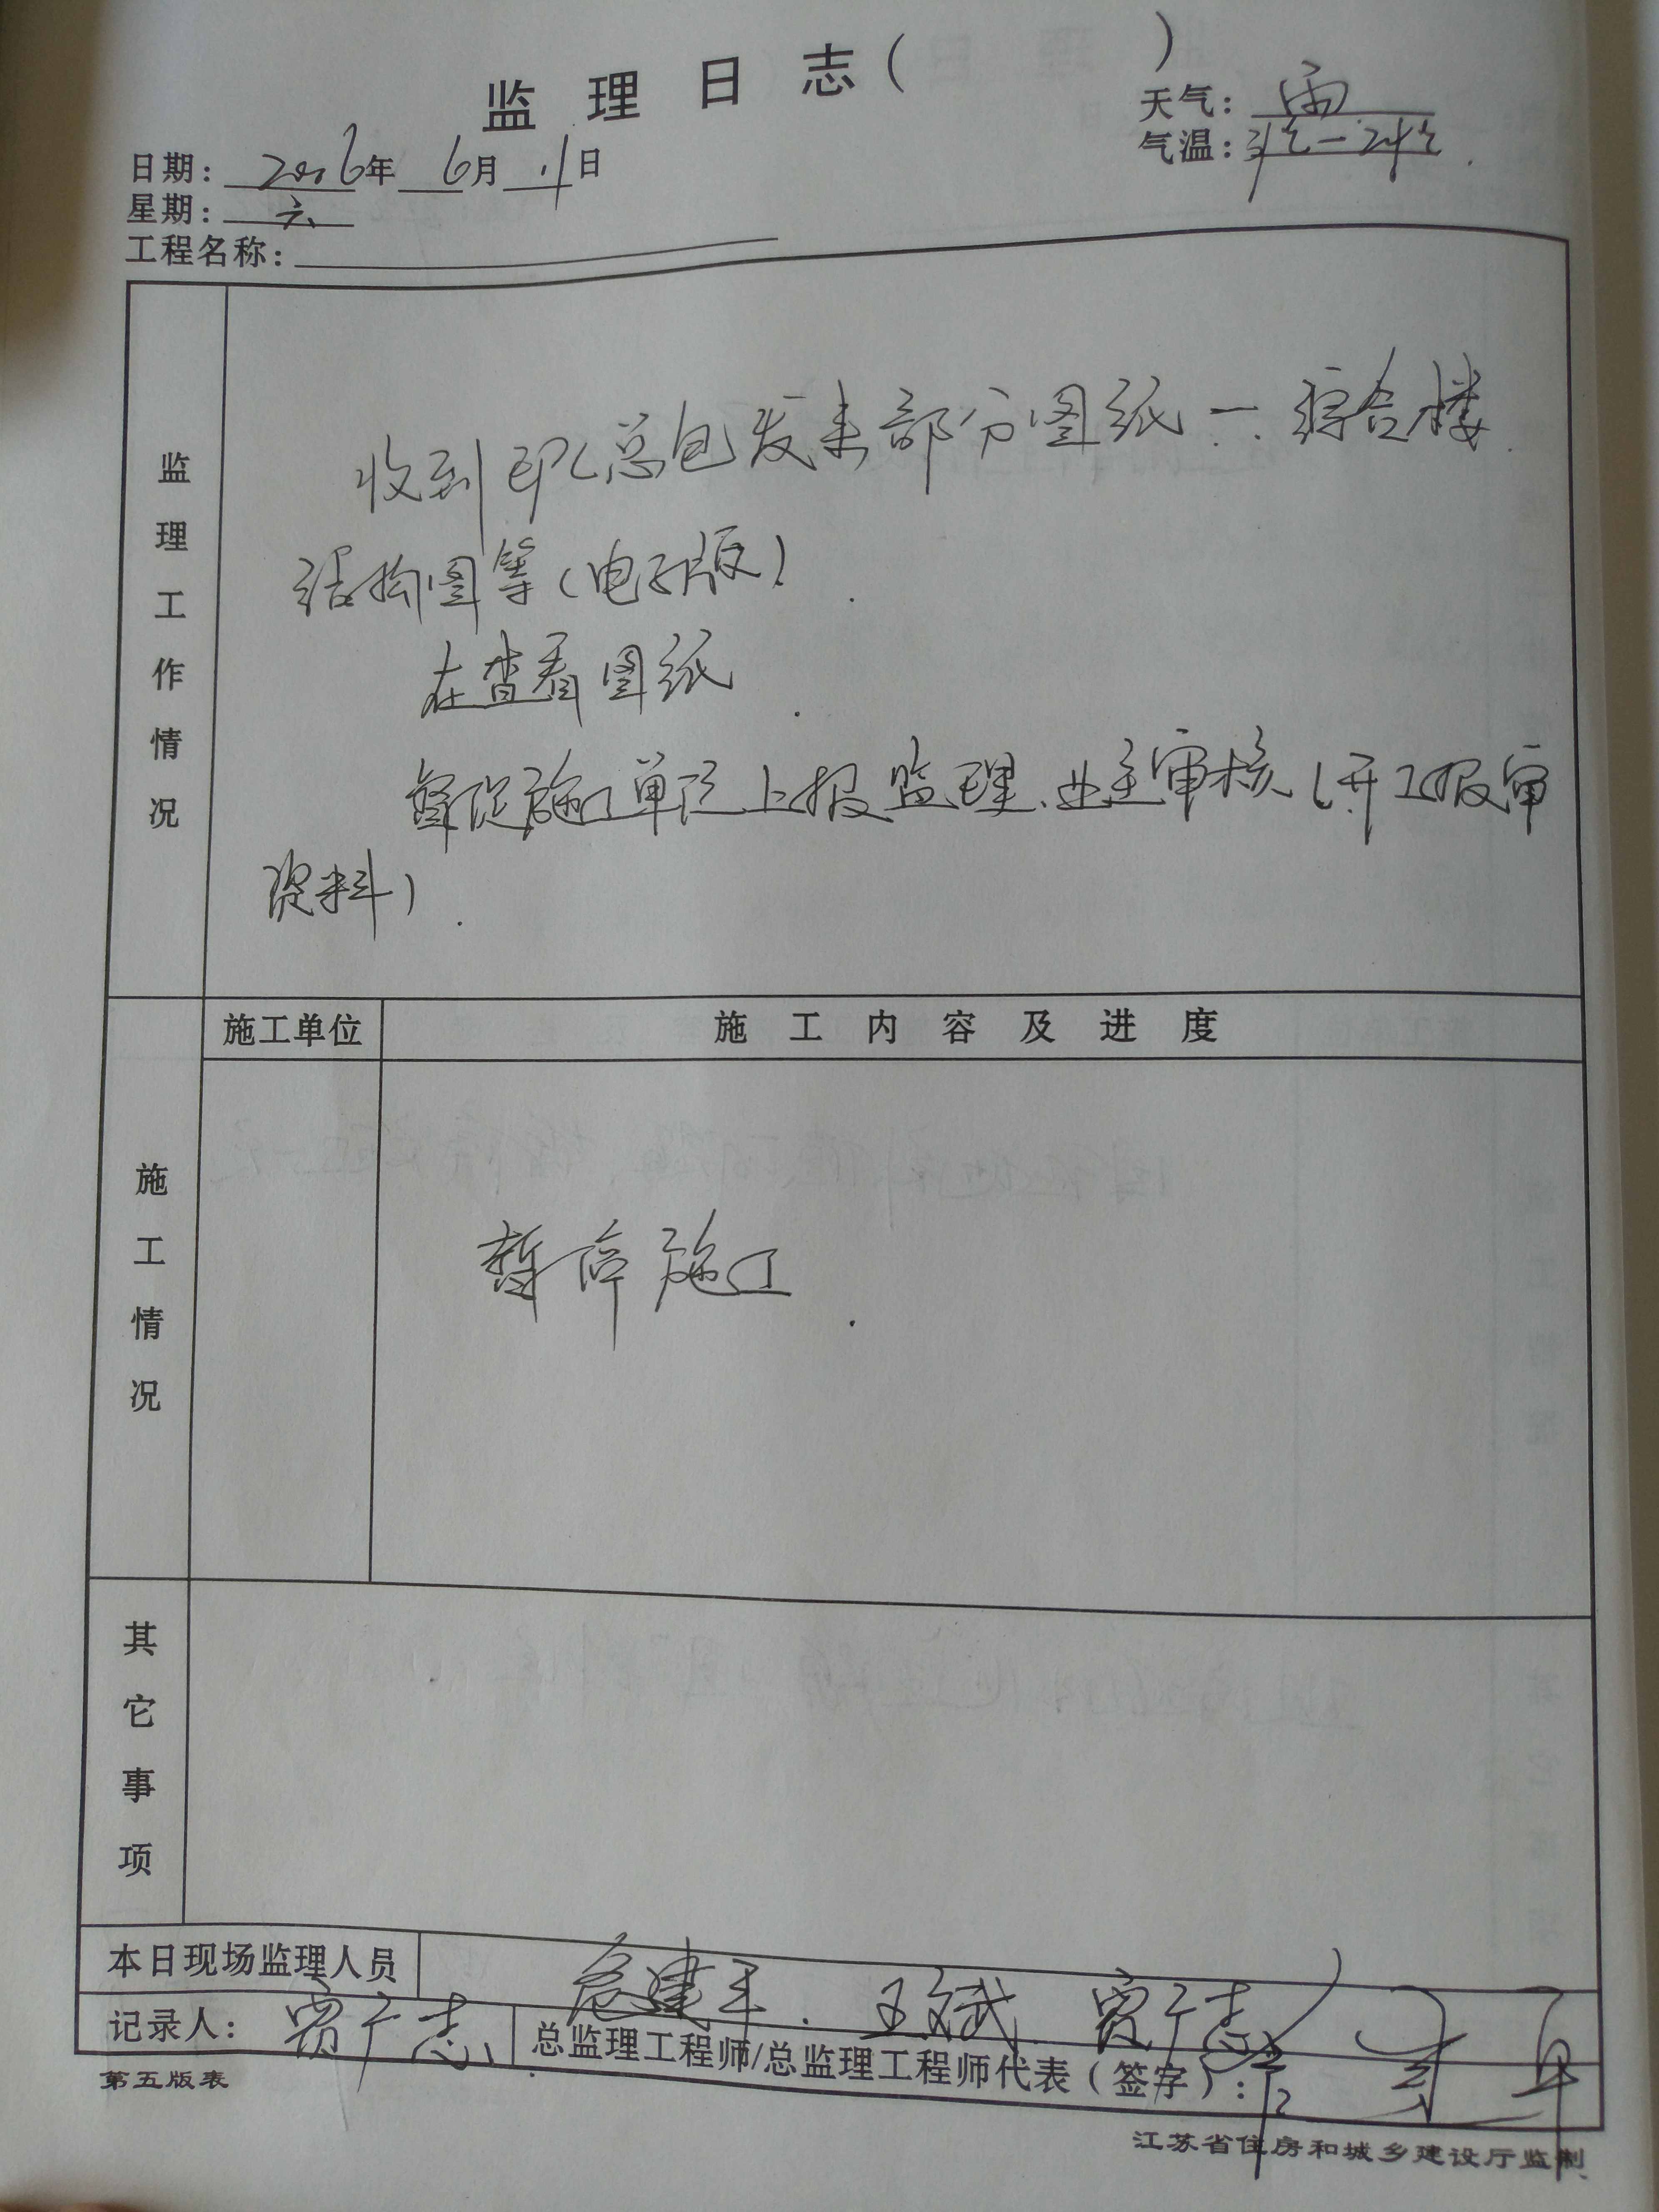 监理日志(　　　)
天气: 雨
气温: 31℃-24℃
日期: 2016年 6月 11日
星期: 六
工程名称:
监理工作情况
收到EPC总包发来部分图纸一:综合楼
结构图等(电子版).
在查看图纸.
督促施工单位上报监理、业主审核(开工报审
资料).
施工情况
施工单位
施工内容及进度
暂停施工.
其它事项
本日现场监理人员
建军. 王斌 贾广志
记录人: 贾广志
总监理工程师/总监理工程师代表(签字):
第五版表
江苏省住房和城乡建设厅监制